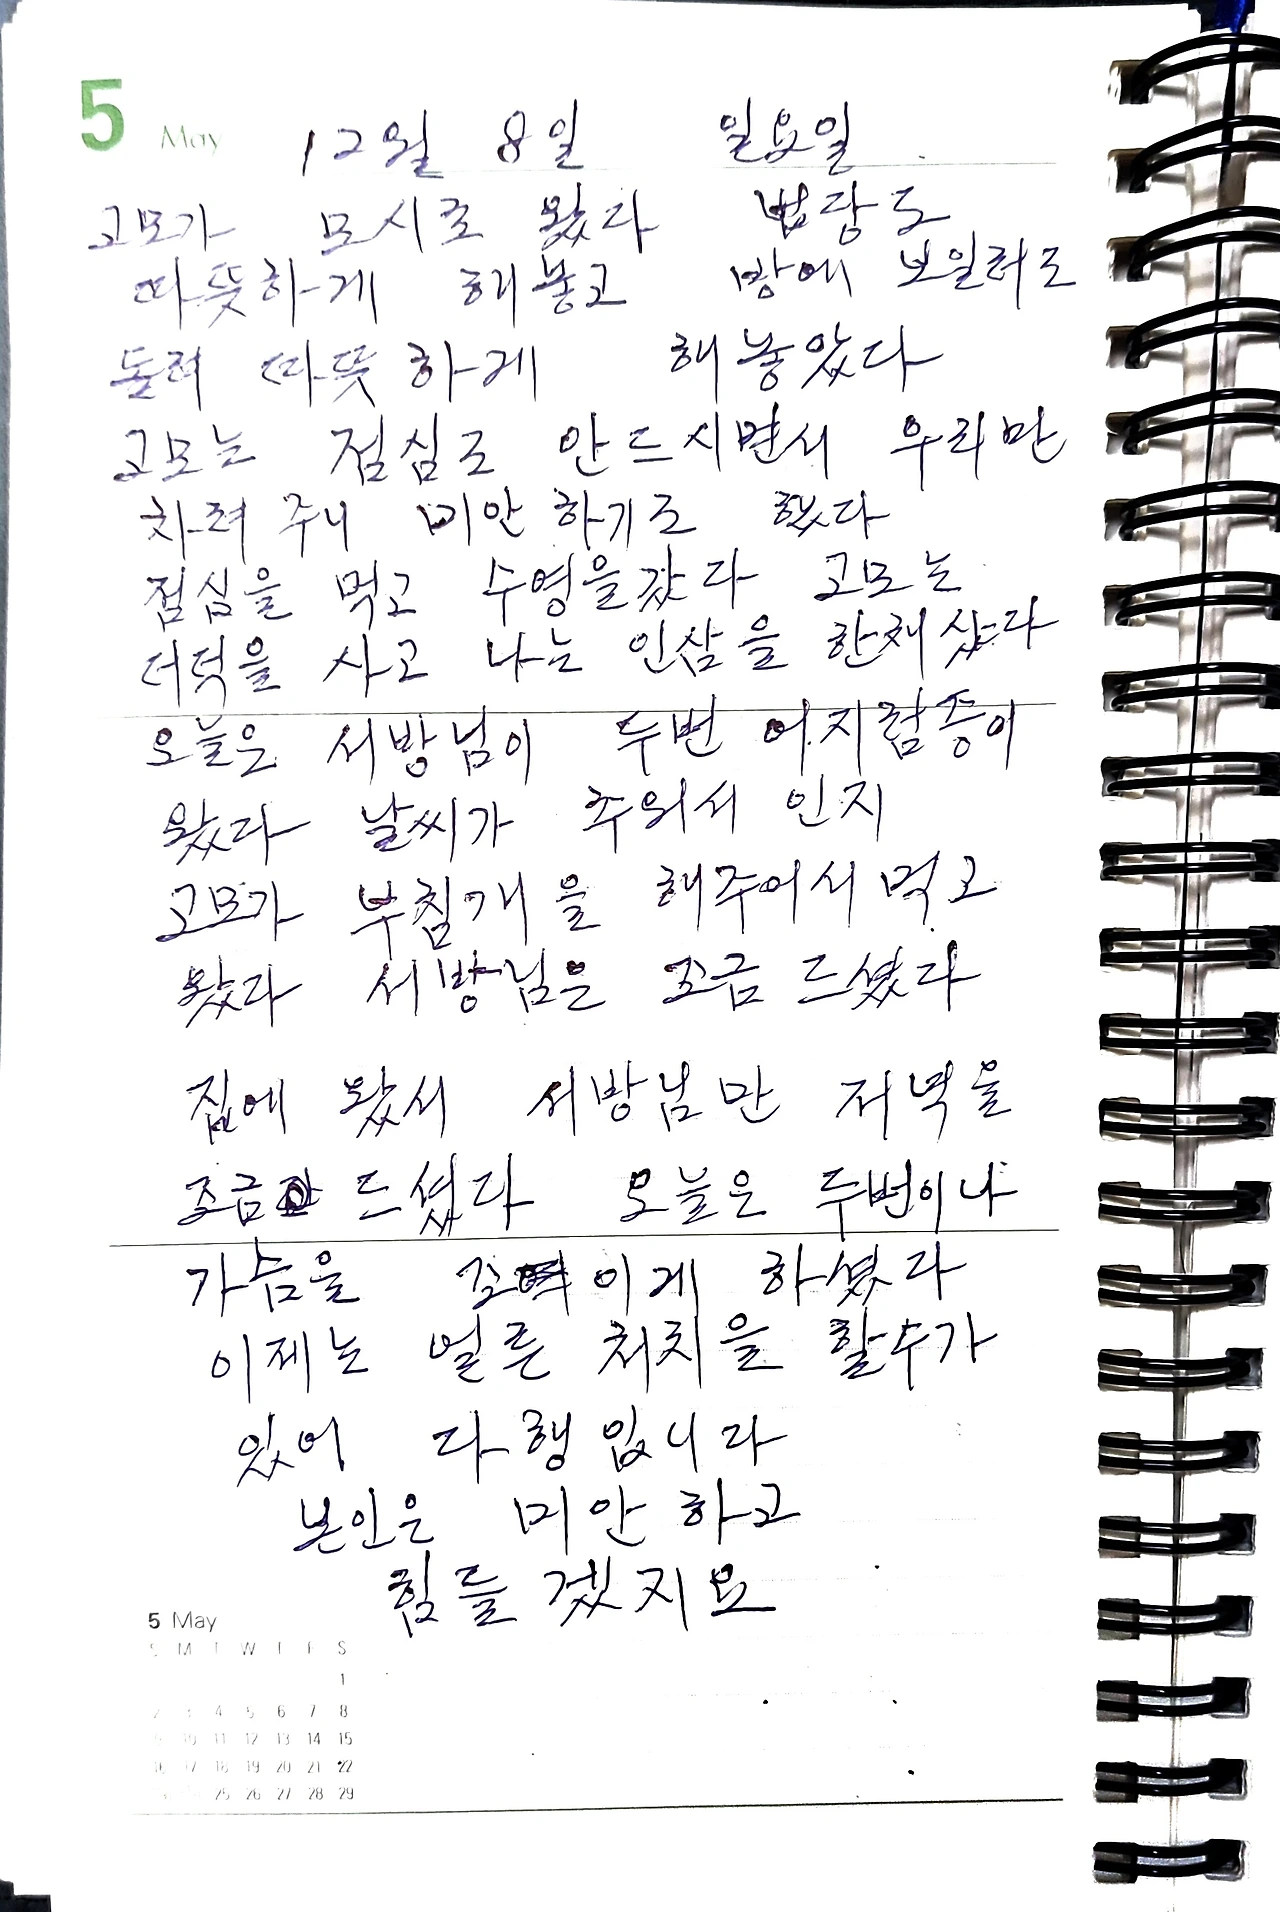 5 May 12월 8일 일요일
고모가 모시로 왔다 법당도
따뜻하게 해놓고 방에 보일러도
돌려 따뜻하게 해놓았다
고모는 점심도 안드시면서 우리만
차려주니 미안하기도 했다
점심을 먹고 수영을갔다 고모는
더덕을 사고 나는 인삼을 한채샀다
오늘은 서방님이 두번 어지럼증이
왔다 날씨가 추워서 인지
고모가 부침개을 해주어서 먹고
왔다 서방님은 조금 드셨다
집에 왔서 서방님만 저녁을
조금 드셨다 오늘은 두번이나
가슴을 이게 하셨다
이제는 얼른 처치을 할수가
있어 다행입니다
본인은 미안하고
힘들겠지요
5 May
S M T W T F S
1
2 3 4 5 6 7 8
9 10 11 12 13 14 15
16 17 18 19 20 21 22
25 26 27 28 29